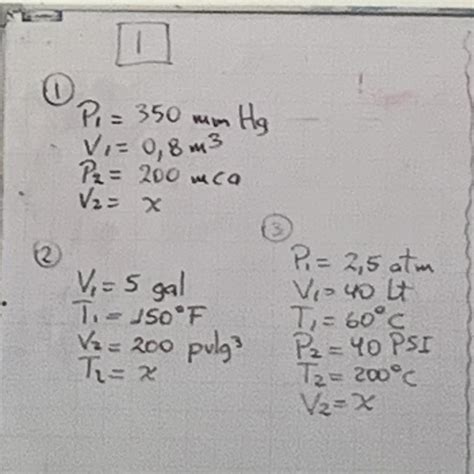 1
①
P₁ = 350 mm Hg
V₁ = 0,8 m³
P₂ = 200 mca
V₂ = x
②
V₁ = 5 gal
T₁ = 150°F
V₂ = 200 pulg³
T₂ = x
③
P₁ = 2,5 atm
V₁ = 40 Lt
T₁ = 60°C
P₂ = 40 PSI
T₂ = 200°C
V₂ = x